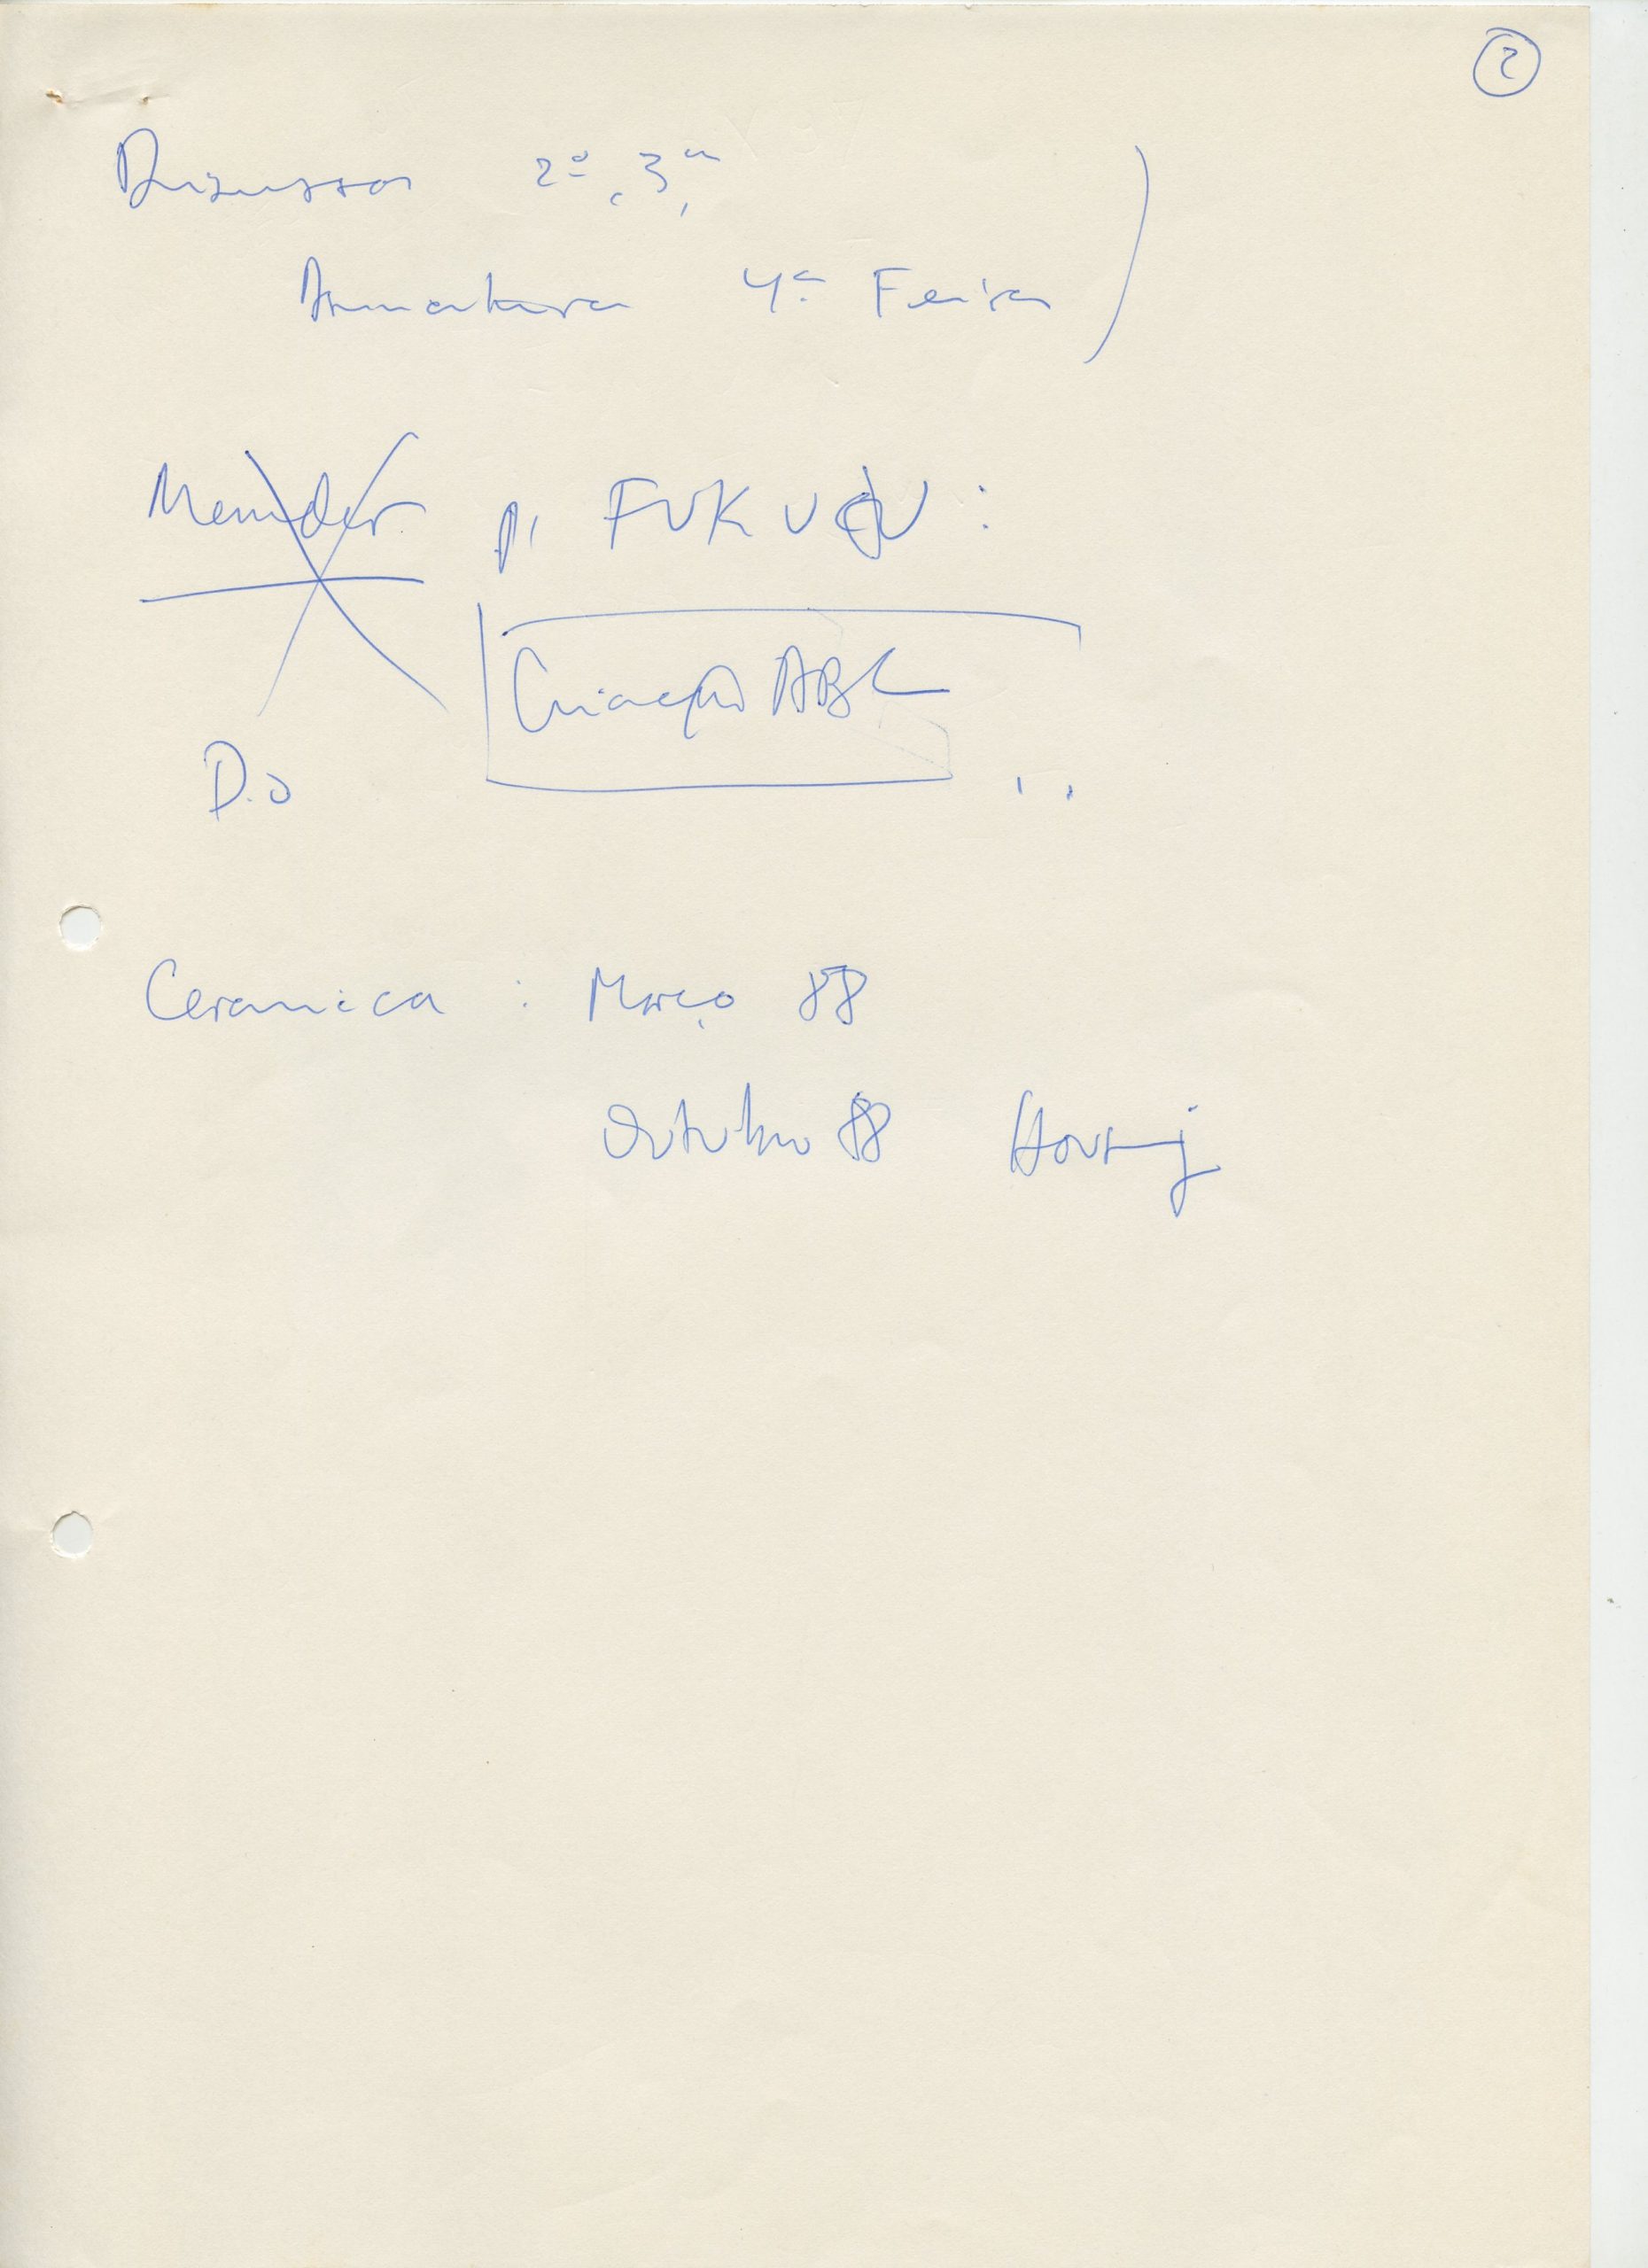 2
Discussão 2ª, 3ª
Assinatura 4ª Feira
p/ FUKUDU :
Criação ABC
D.O
Ceramica : Março 88
Outubro 88